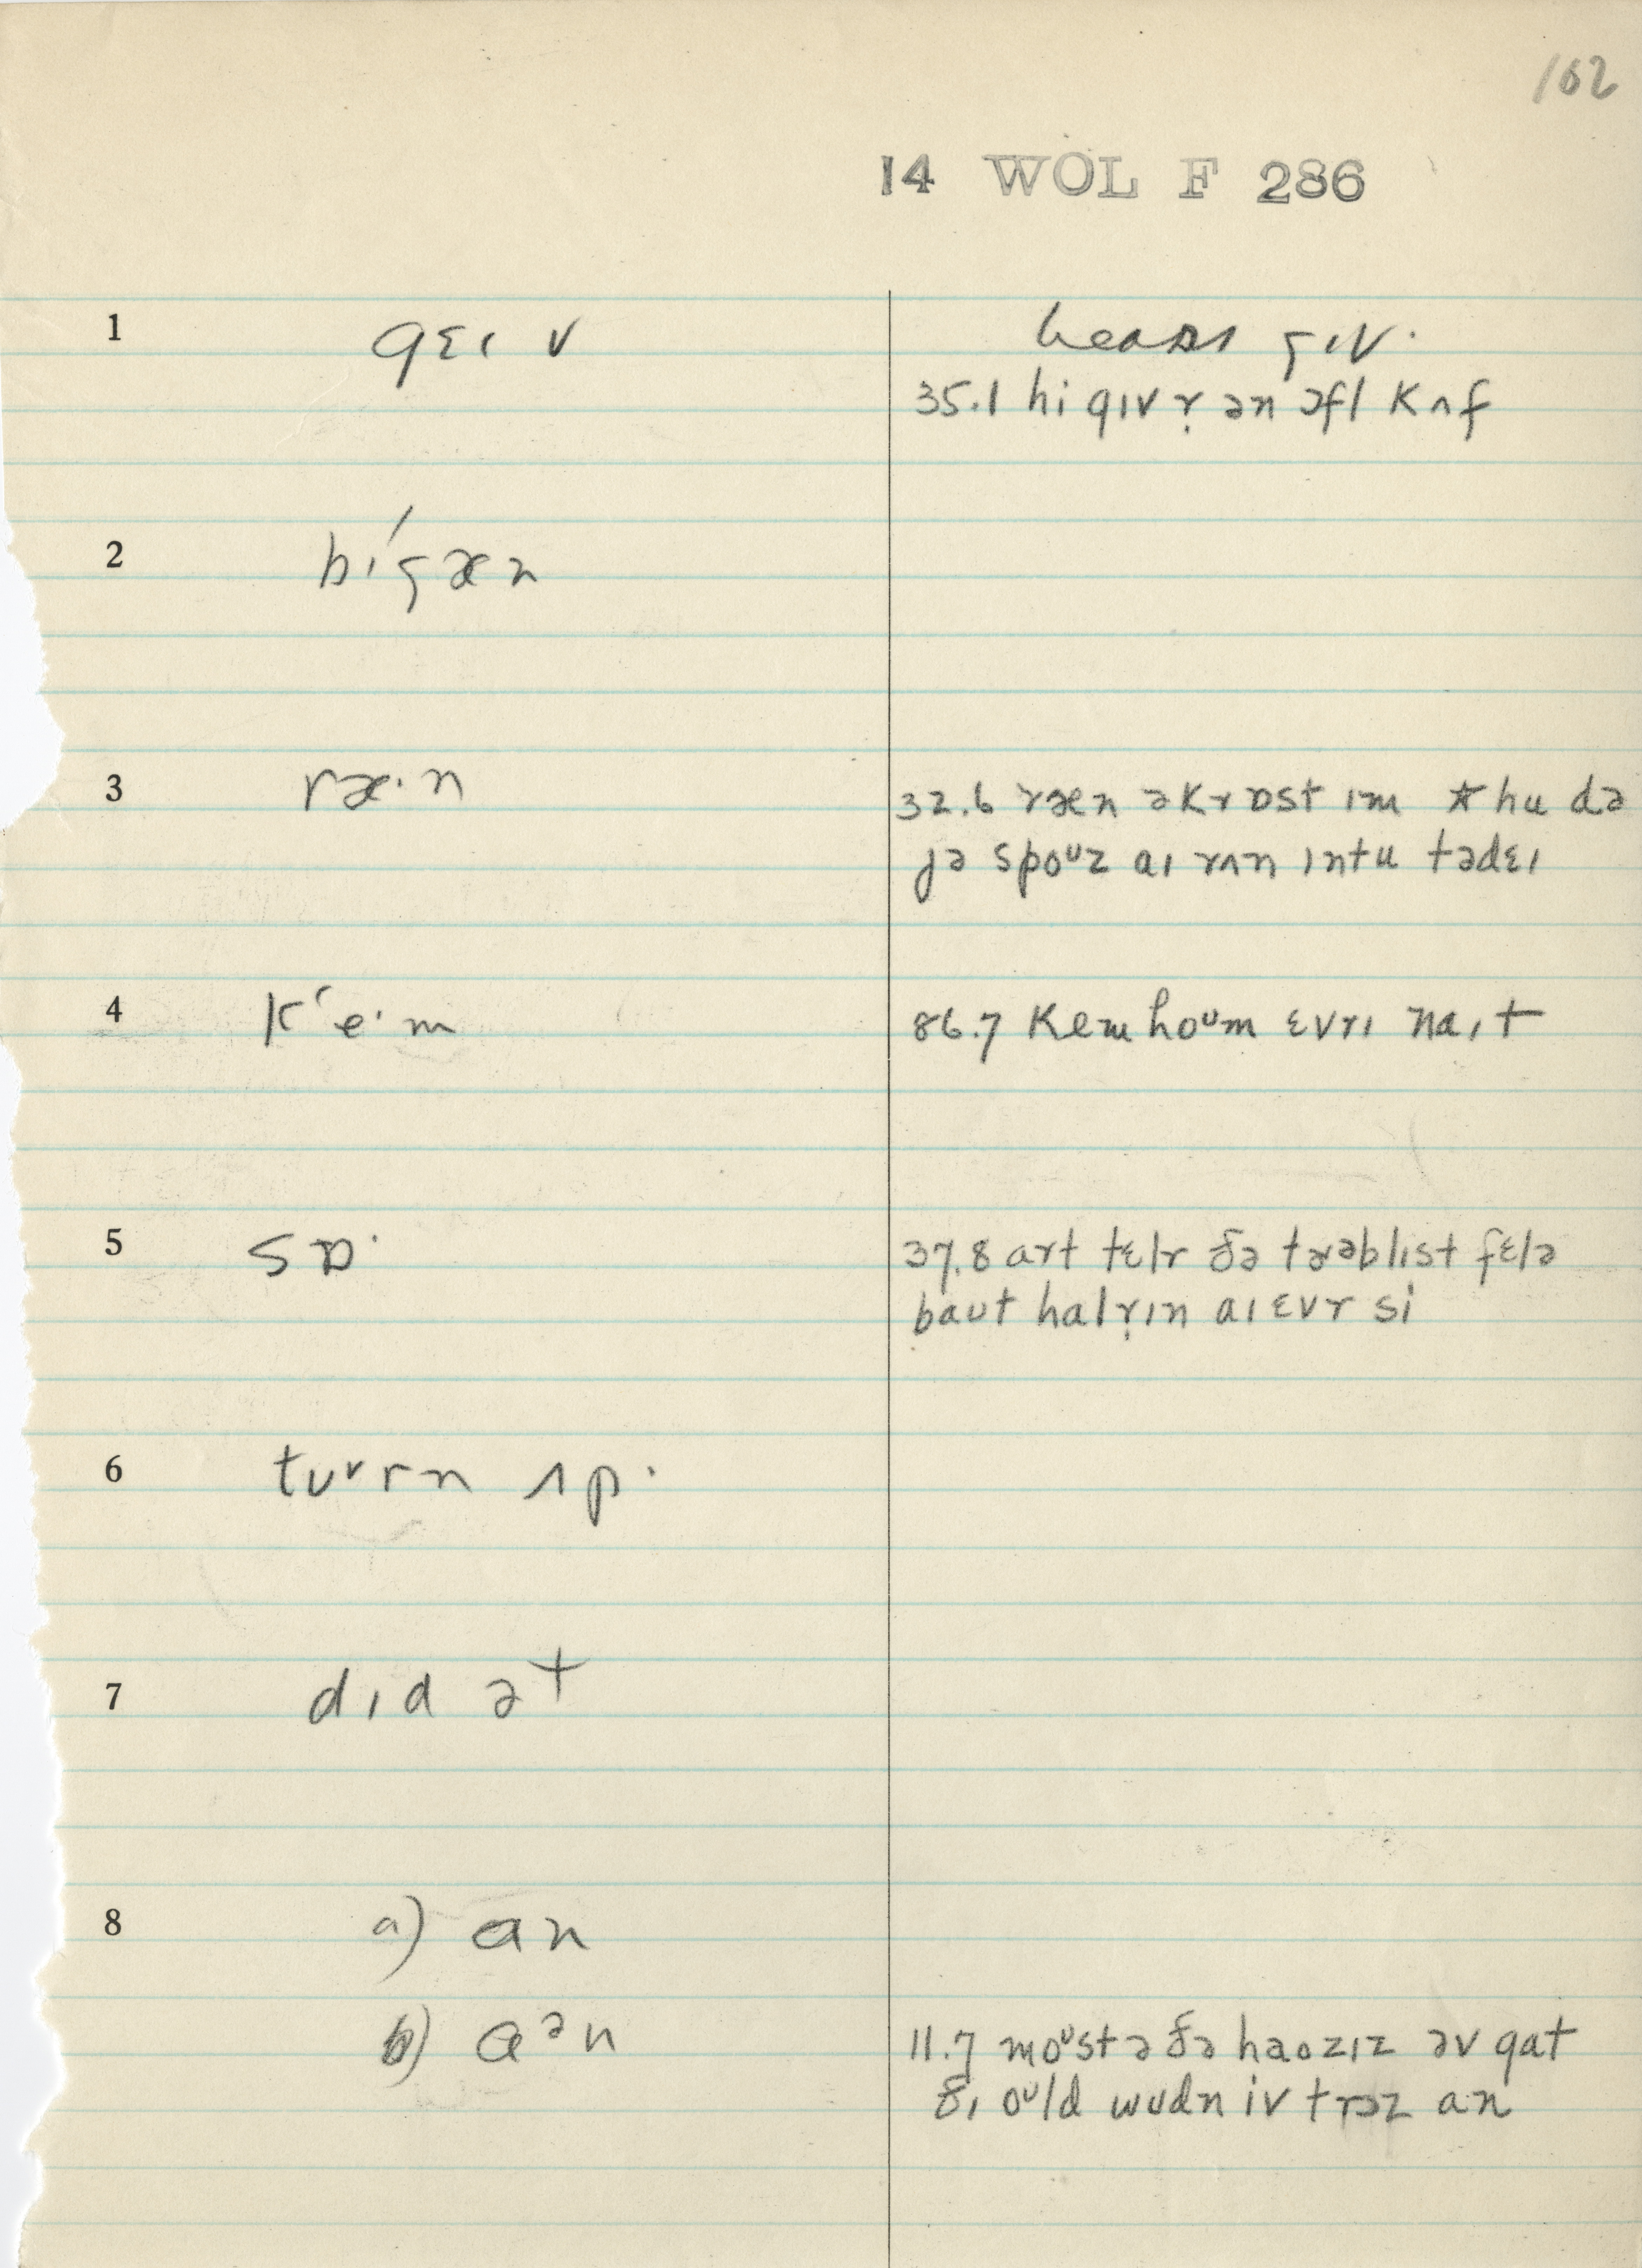 162
14 WOL F 286
1 gɛɪ v
hears gɪv.
35.1 hi gɪv r̩ ən ɔfl kʌf
2 bɪ́gæn
3 ræ·n
32.6 ræn əkrɒst ɪm * hu də
jə spoᶷz aɪ rʌn ɪntu tədɛɪ
4 kʻe·m
86.7 kem hoᶷm ɛvrɪ naɪt
5 sɒ·
37.8 art tɛlr ðə trəblɪst fɛlə
baut halr̩ɪn aɪ ɛvr si
6 tᴜᵛrn ʌp·
7 dɪd ət
8 a) an
b) aᵊn
11.7 moᶷst ə ðə haozɪz əv gat
ðɪ oᶷld wudn iv trɔz an